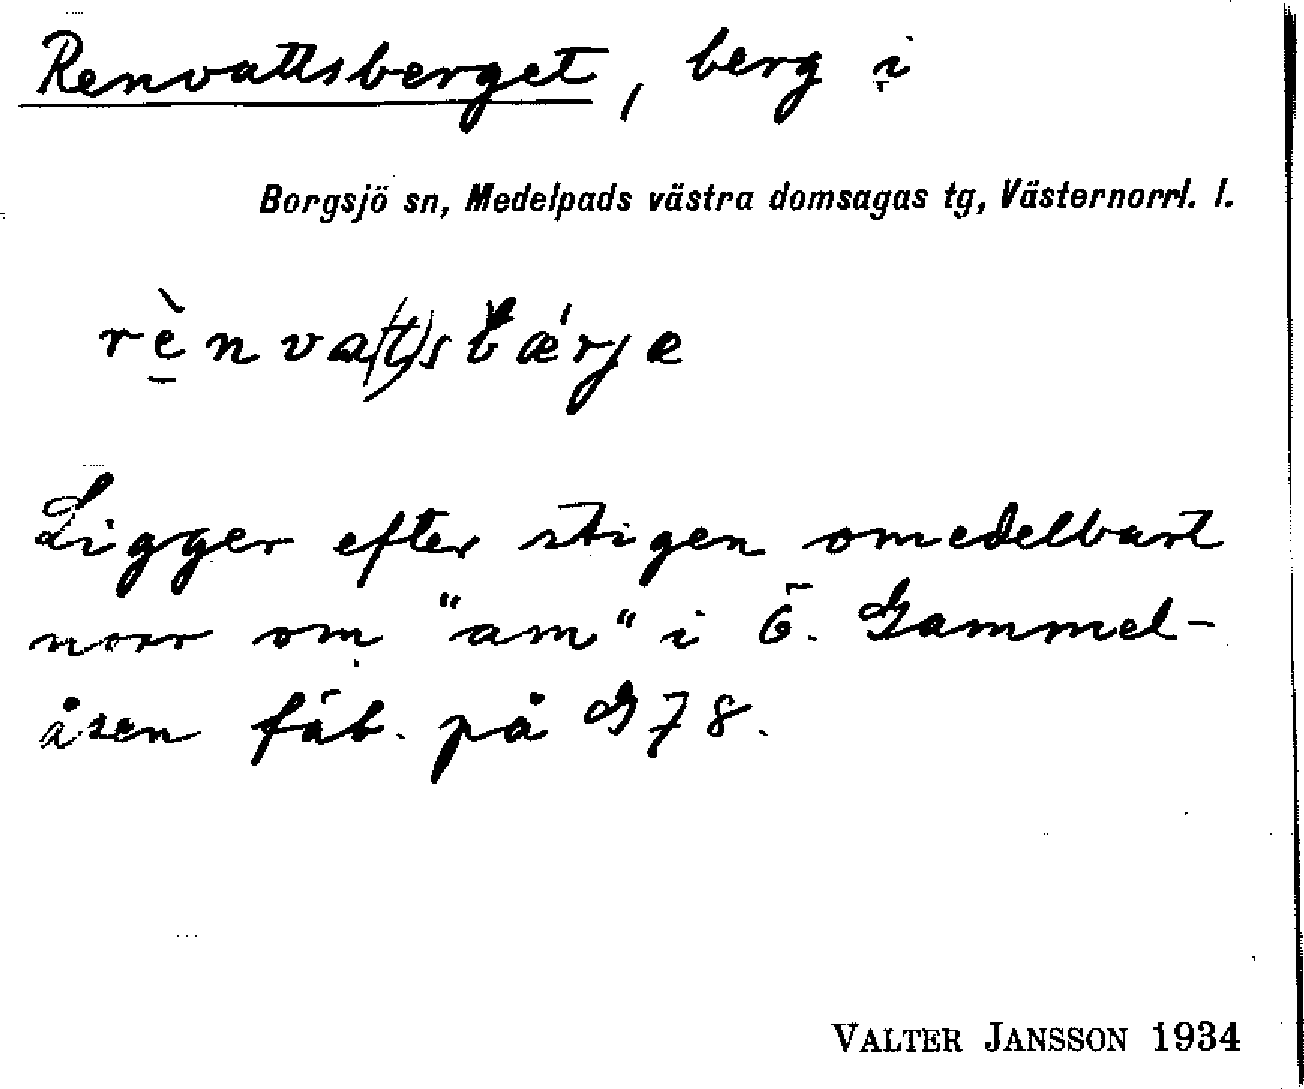 Renvattsberget, berg i
Borgsjö sn, Medelpads västra domsagas tg, Västernorrl. l.
rènva(t)sbǽrje
Ligger efter stigen omedelbart
norr om "am" i Ö. Gammel-
åsen fäb. på G 78.
VALTER JANSSON 1934